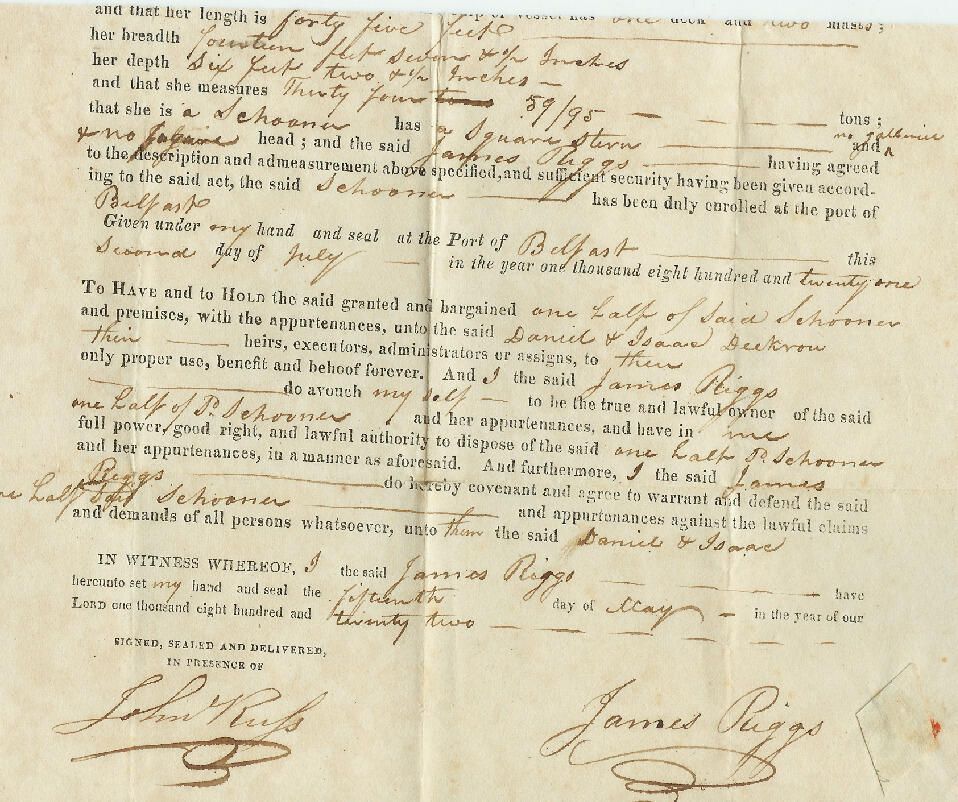 and that her length is forty five feet ship or vessel has one deck and two masts ;
her breadth fourteen feet seven & 1/2 Inches
her depth six feet two & 1/2 Inches —
and that she measures Thirty four tons 59/95 — — — tons ;
that she is a Schooner has a Square Stern no gallerie
& no figure head ; and the said James Riggs and
to the description and admeasurement above specified, and sufficient security having been given accord- having agreed
ing to the said act, the said Schooner has been duly enrolled at the port of
Belfast
Given under my hand and seal at the Port of Belfast this
second day of July — in the year one thousand eight hundred and twenty one
To Have and to Hold the said granted and bargained one half of said Schooner
and premises, with the appurtenances, unto the said Daniel & Isaac Deckrow
their heirs, executors, administrators or assigns, to their
only proper use, benefit and behoof forever. And I the said James Riggs
do avouch my self — to be the true and lawful owner of the said
one half of Sd. Schooner and her appurtenances, and have in me
full power, good right, and lawful authority to dispose of the said one half Sd. Schooner
and her appurtenances, in a manner as aforesaid. And furthermore, I the said James
Riggs do hereby covenant and agree to warrant and defend the said
one half Said Schooner and appurtenances against the lawful claims
and demands of all persons whatsoever, unto them the said Daniel & Isaac
IN WITNESS WHEREOF, I the said James Riggs have
hereunto set my hand and seal the fifteenth day of May — in the year of our
Lord one thousand eight hundred and twenty two — — — — — —
SIGNED, SEALED AND DELIVERED,
IN PRESENCE OF
John Russ James Riggs